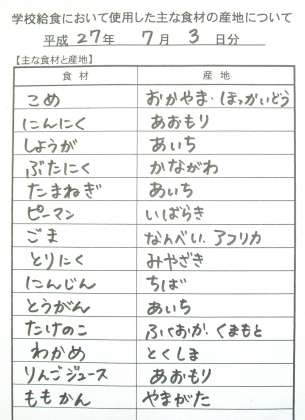 学校給食において使用した主な食材の産地について
平成 27年 7月 3日分
【主な食材と産地】
食材 産地
こめ おかやま・ほっかいどう
にんにく あおもり
しょうが あいち
ぶたにく かながわ
たまねぎ あいち
ピーマン いばらき
ごま なんべい.アフリカ
とりにく みやざき
にんじん ちば
とうがん あいち
たけのこ ふくおか.くまもと
わかめ とくしま
りんごジュース あおもり
ももかん やまがた